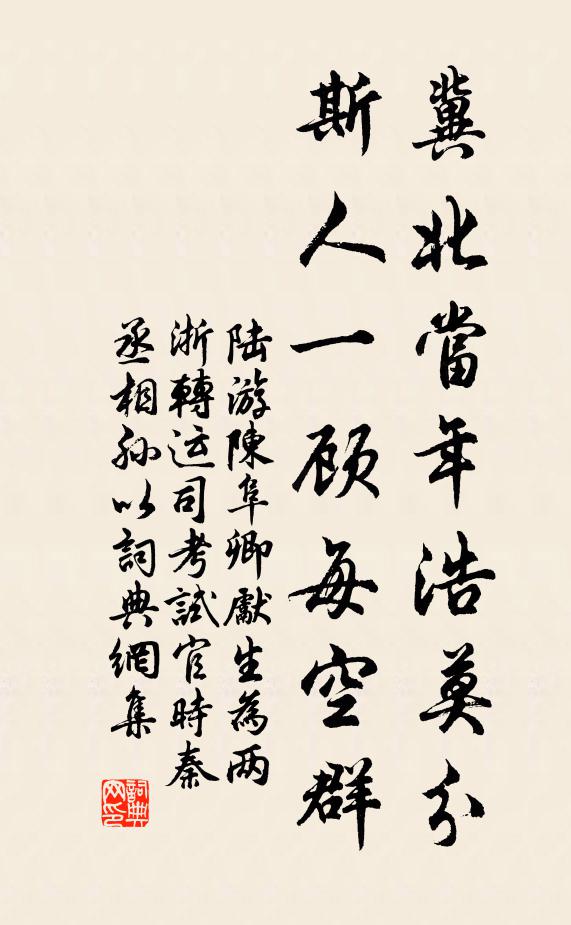 冀北當年浩莫分
斯人一顾每空群
陆游陳阜卿獻生為两
浙轉运司考試官時秦
丞相孙以詞典網集
詞典网印